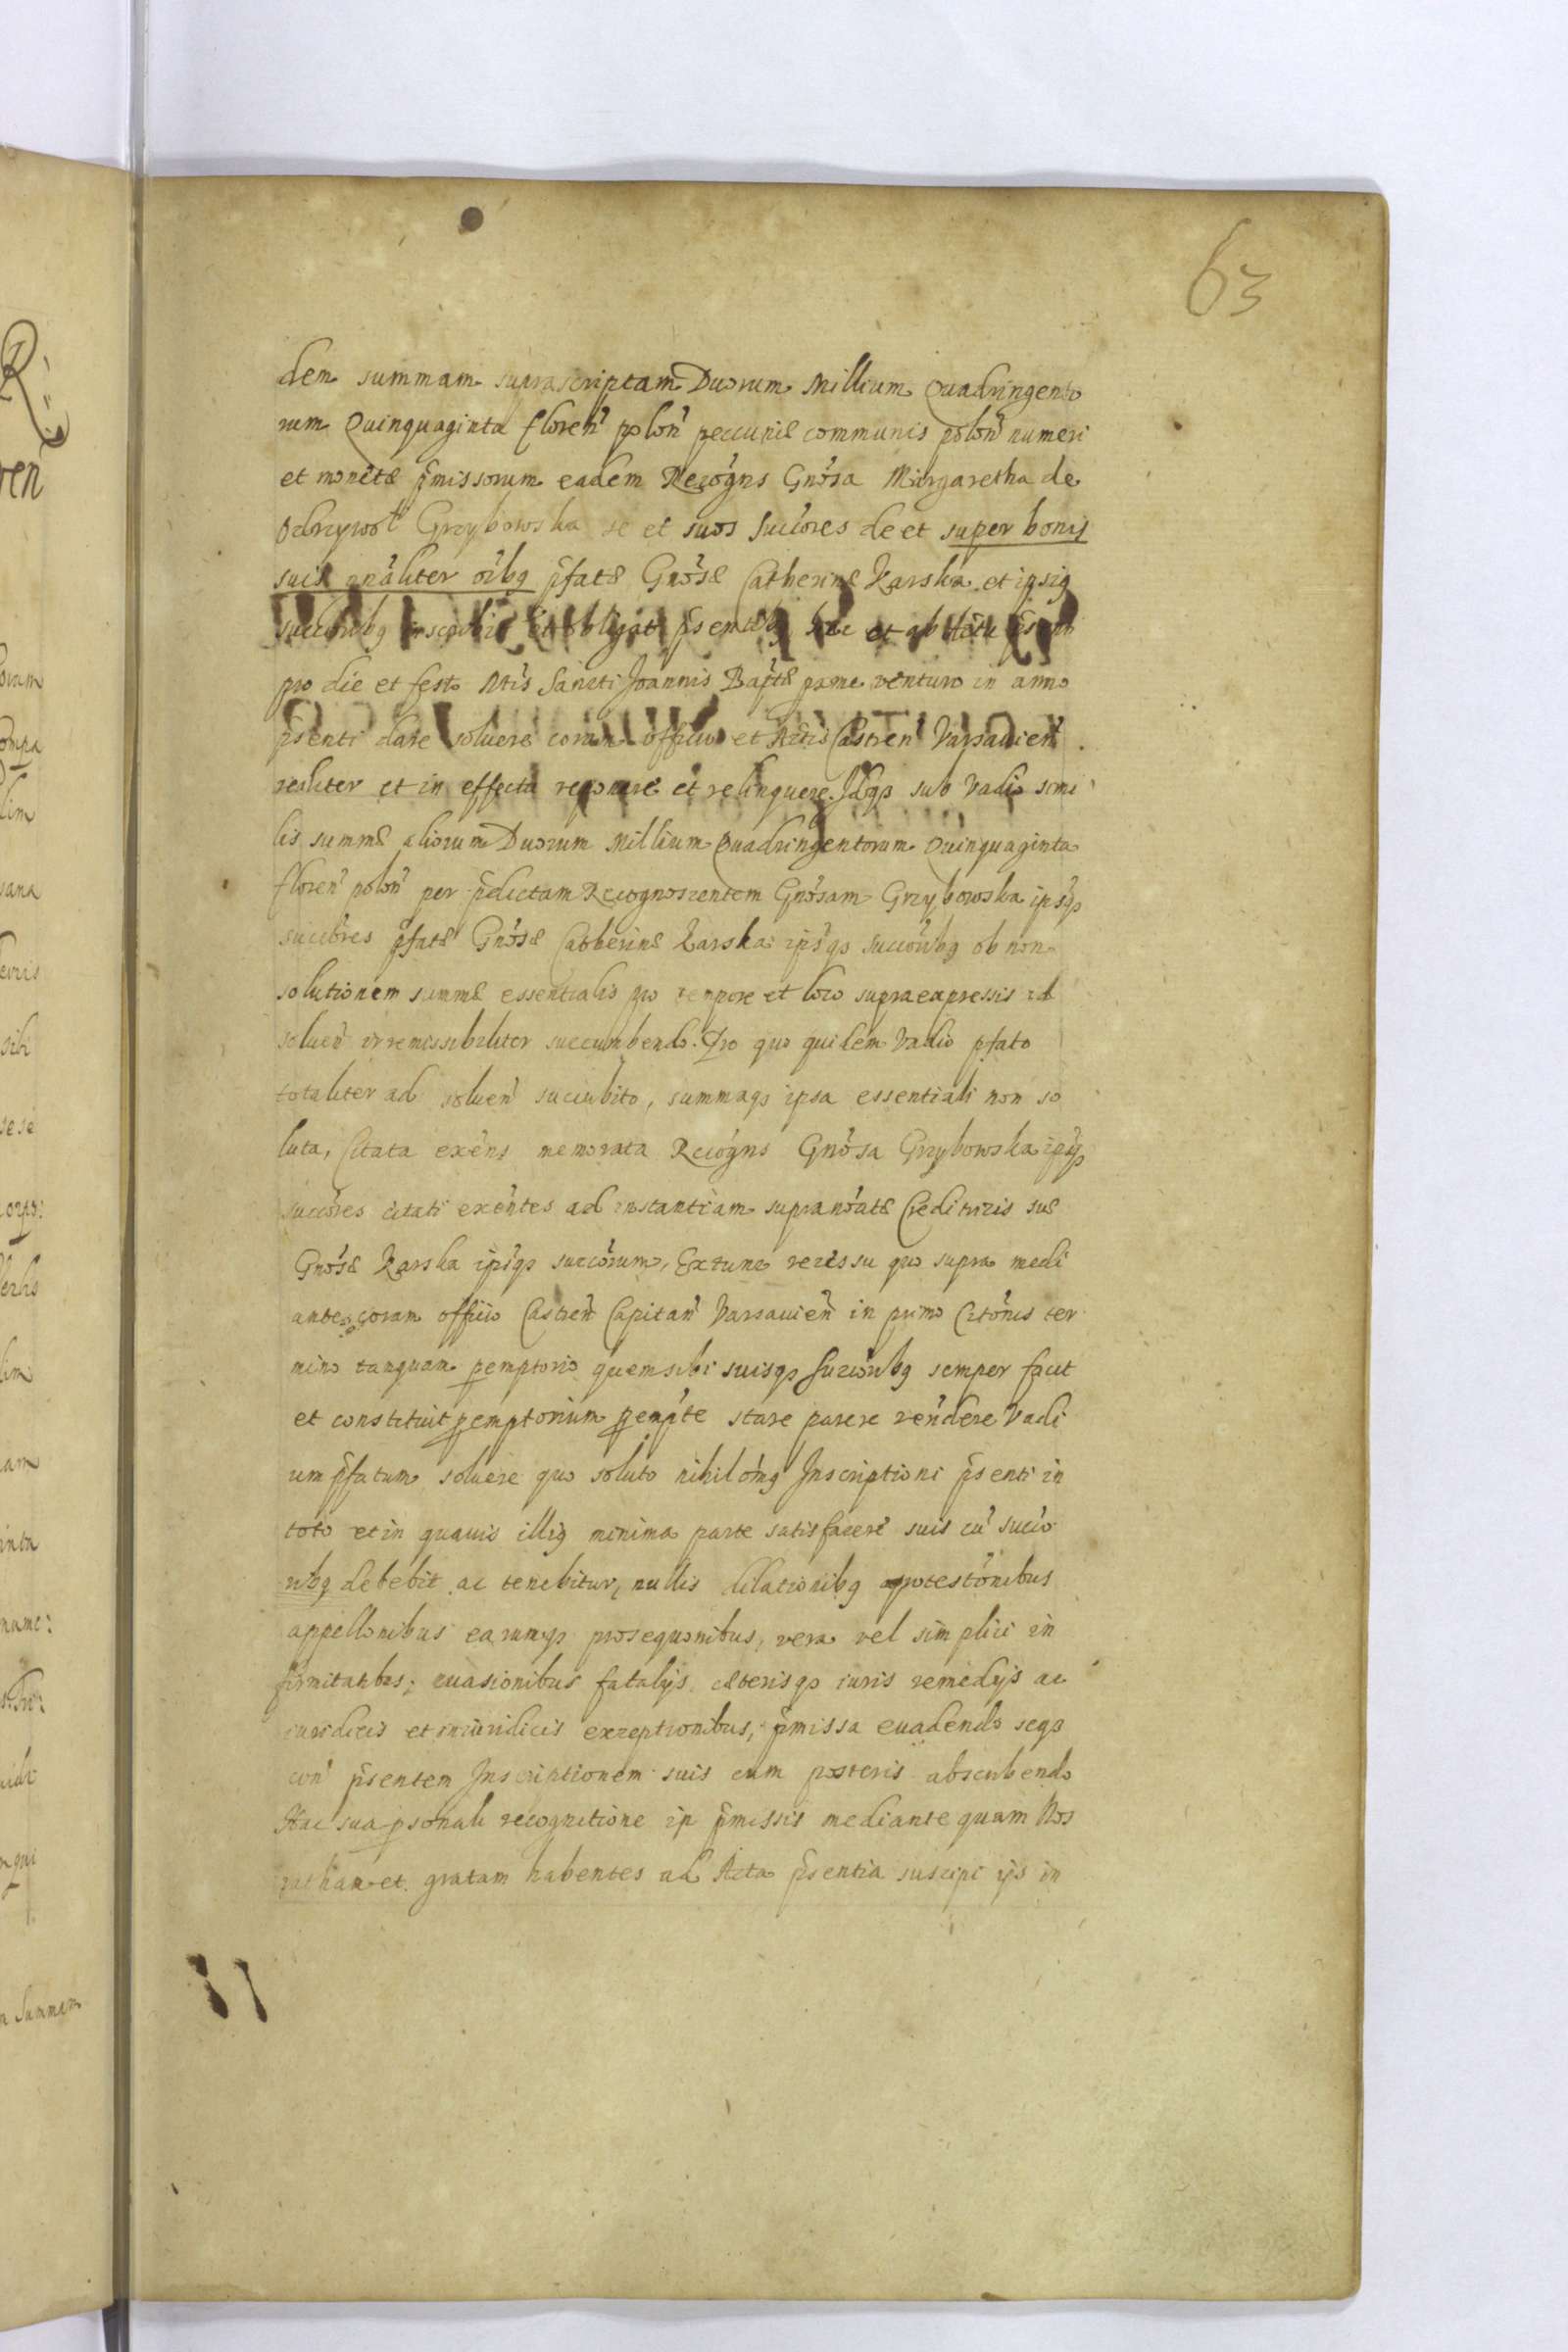 63
dem summam suprascriptam Duorum Millium Quadringento
rum Quinquaginta floren̄ polon̄ peccuniæ communis polon̄ numeri
et monetæ p̄missorum eadem Recógns Gnósa Margaretha de
Odrzywoł Grzybowska se et suos Succóres de et super bonis
suis gnâliter oîbq p̄fatæ Gnósæ Catherinæ Karska et ipsiq
succorubq inscribit et obligat p̄sentibq
pro die et festo Ntis Sancti Joannis Bap̄tæ pxme venturo in anno
p̄senti dare soluere coram officio et Actis Castren̄ Varsauien̄
realiter et in effectu reponere et relinquere. Idqȝ sub Vadio simi
lis summæ aliorum Duorum Millium Quadringentorum Quinquaginta
floren̄ polon̄ per p̄dictam Recognoscentem Gnósam Grzybowska ipsqȝ
succóres p̄fatæ Gnósæ Catherinæ Karska ipsqȝ succórubq ob non
solutionem summæ essentialis pro tempore et loco supraexpressis ad
soluen̄ irremissibiliter succumbendo. Pro quo quidem Vadio p̄fato
totaliter ad soluen̄ succubito, summaqȝ ipsa essentiali non so
luta, Citata exéns memorata Recógns Gnósa Grzybowska ipsqȝ
succóres citati exéntes ad instantiam supranóatæ Creditricis suæ
Gnósæ Karska ipsqȝ succórum, Extunc recessu quo supra medi
ante coram officio Castren̄ Capitan̄ Varsauien̄ in primo Citónis ter
mino tanquam pemptorio quem sibi suisqȝ Succórubq semper facit
et constituit pemptorium pemp̄te stare parere rendere Vadi
um p̄fatum soluere quo soluto nihilomq Inscriptioni p̄senti in
toto et in quauis illiq minima parte satisfacere suis cū succo
rubq debebit ac tenebitur, nullis dilationibq protestónibus
appellonibus earumqȝ prosequonibus, vera vel simplici in
firmitatibus, euasionibus fatalijs, cæterisqȝ iuris remedijs ac
iuridicis et iniuridicis exceptionibus, p̄missa euadendo seqȝ
con̄ p̄sentem Inscriptionem suis cum posteris absentendo
Hac sua psonali recognitione in p̄missis mediante quam Nos
ratham et gratam habentes ad Acta p̄sentia suscipi ijs in